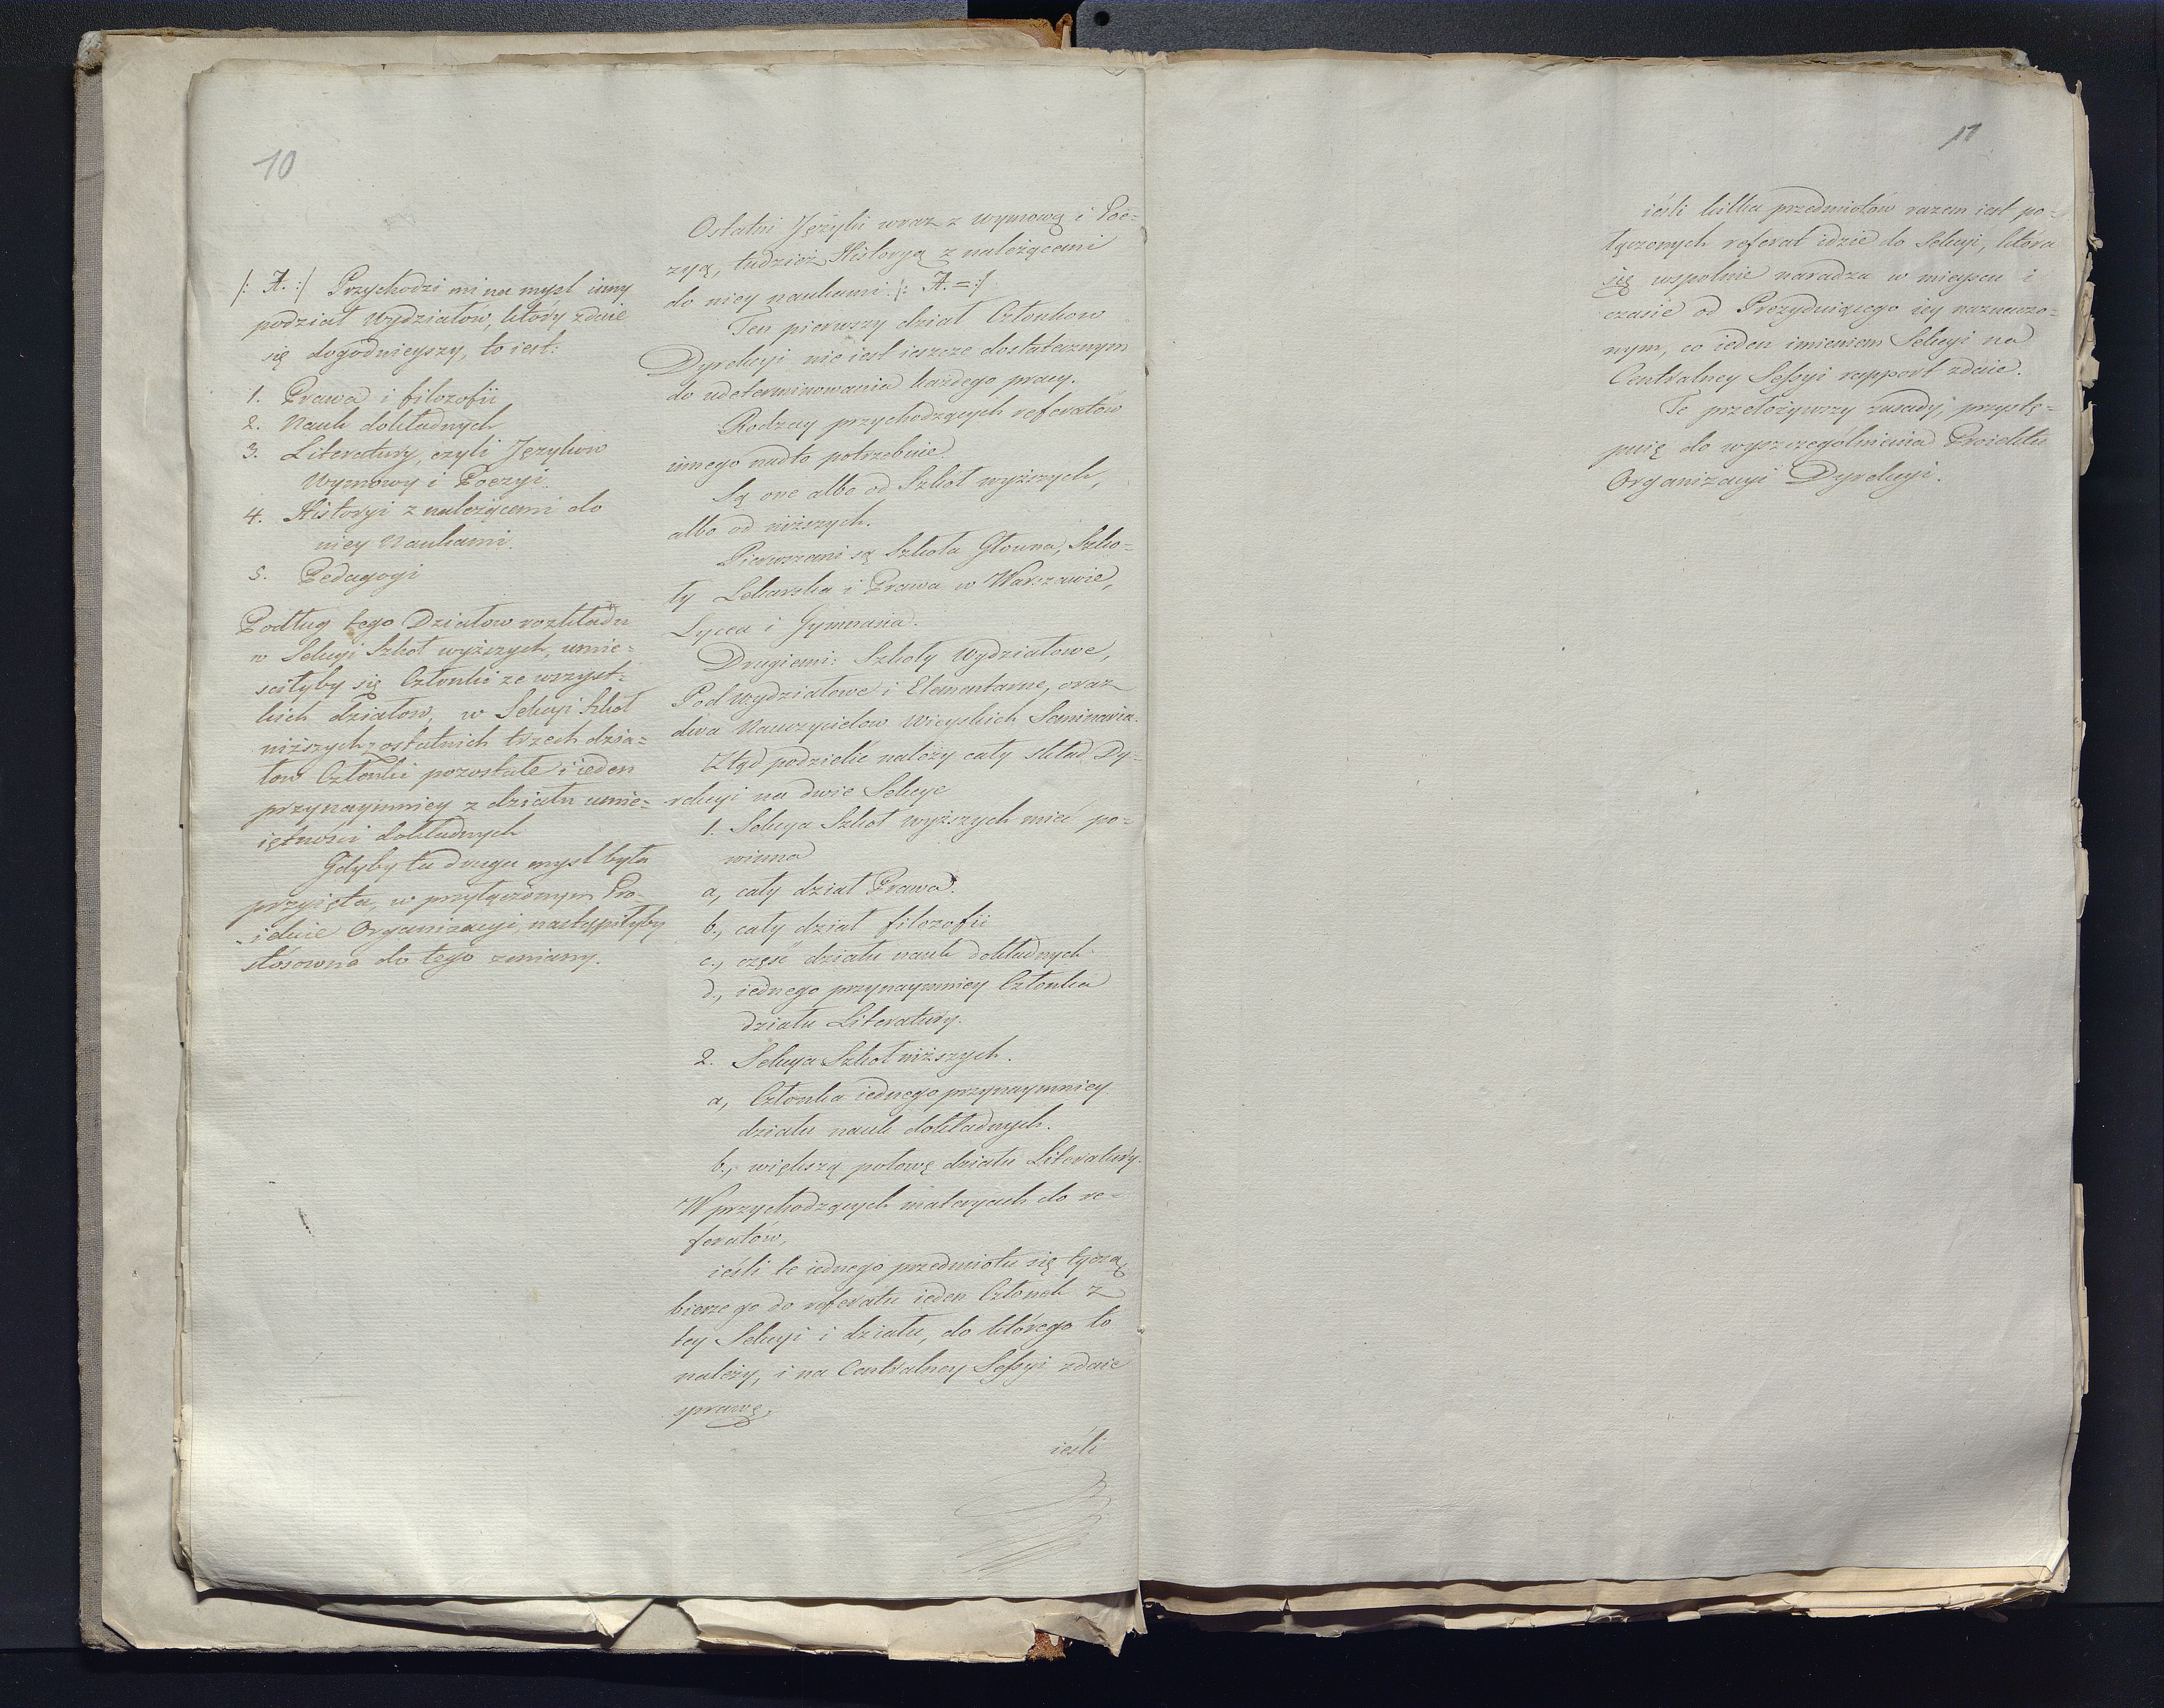 10
/: A. :/ Przychodzi mi na mysl inny
podział Wydziałów, który zdaie
się dogodnieyszy, to iest:
1. Prawa i filozofii
2. Nauk dokładnych
3. Literatury, czyli Języków
Wymowy i Poezyi.
4. Historyi z należącemi do
niey Naukami.
5. Pedagogi
Podług tego Działow rozkładu
w Sekcyi Szkół wyższych, umie=
sciłyby się Członki ze wszyst=
kich działow, w Sekcyi szkół
niższych z ostatnich trzech dzia=
łow Członki pozostałe i ieden
przynaymniey z działu umie=
iętności dokładnych
Gdyby ta druga mysl była
przyięta, w przyłączonym Pro=
iekcie Organizacyi, nastąpiłyby
stosowne do tego zmiany.
Ostatni Języki wraz z wymową i Poe=
zyą, tudzież Historyą z należącemi
do niey naukami /: A. = :/
Ten pierwszy dział Członkow
Dyrekcyi nie iest ieszcze dostatecznym
do udeterminowania każdego pracy.
Rodzay przychodzących referatów
innego nadto potrzebuie.
Są one albo od Szkół wyższych,
albo od niższych.
Pierwszemi są Szkoła Głowna, Szko=
ły Lekarska i Prawa w Warszawie,
Lycea i Gymnasia.
Drugiemi: Szkoły Wydziałowe,
Podwydziałowe i Elementarne, oraz
dwa Nauczycielow Wieyskich Seminaria.
Ztąd podzielić należy cały skład Dy=
rekcyi na dwie Sekcye
1. Sekcya Szkół wyższych mieć po=
winna
a, cały dział Prawa.
b., cały dział filozofii
c., część działu nauk dokładnych
d., iednego przynaymniey Członka
działu Literatury.
2. Sekcya Szkół niższych.
a, Członka iednego przynaymniey
działu nauk dokładnych.
b., większą połowę działu Literatury.
W przychodzących materyach do re=
feratów,
ieśli te iednego przedmiotu się tyczą,
bierze go do referatu ieden Członek z
tey Sekcyi i działu, do którego to
należy, i na Centralney Sessyi zdaie
sprawę,
ieśli
11
ieśli kilka przedmiotów razem iest po=
łączonych referat idzie do Sekcyi, która
się wspolnie naradza w mieyscu i
czasie od Prezyduiącego iey naznaczo=
nym, co ieden imieniem Sekcyi na
Centralney Sessyi rapport zdaie.
Te przełożywszy zasady, przystę=
puię do wyszczególnienia Proiektu
Organizacyi Dyrekcyi.